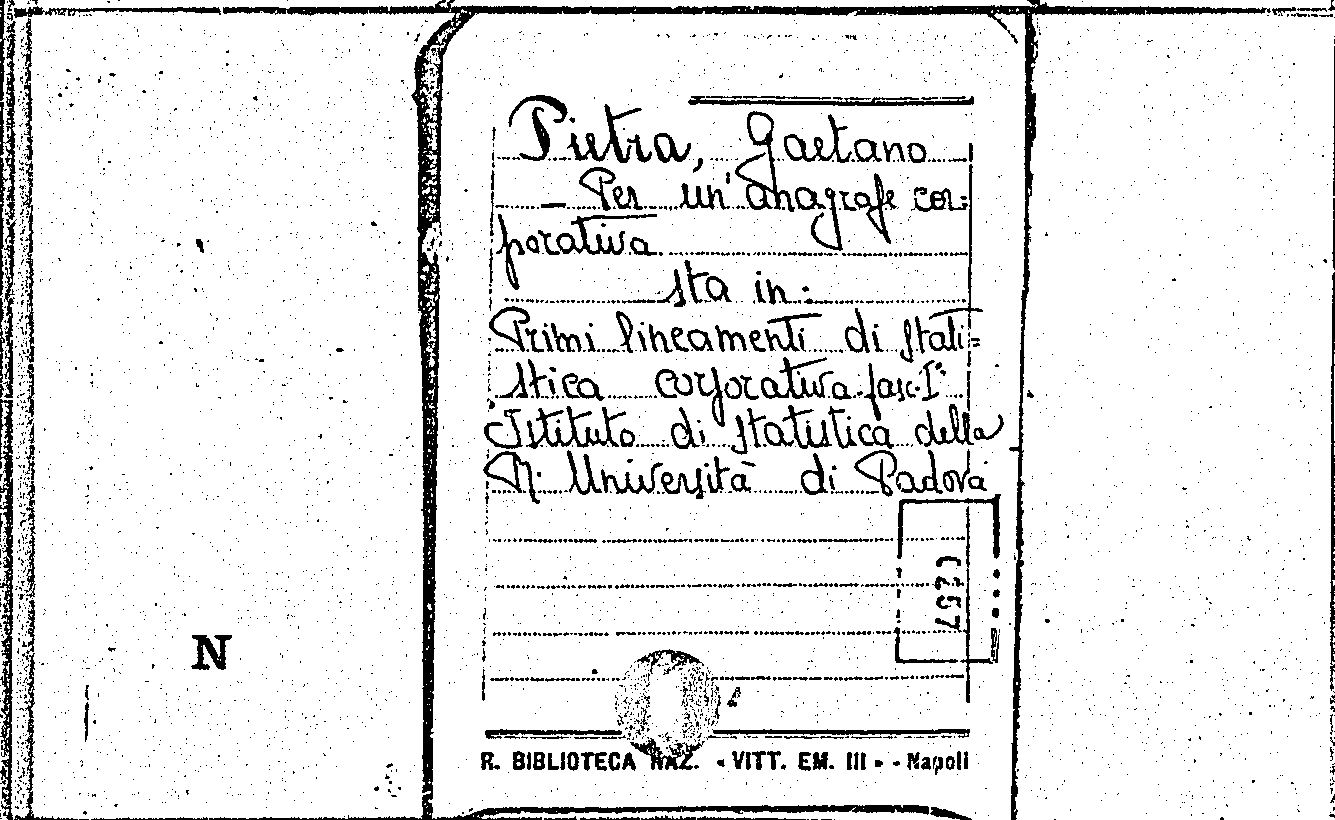 Pietra, Gaetano
- Per un'anagrafe cor=
porativa
sta in:
Primi lineamenti di stati=
stica corporativa. fasc. I°
Istituto di statistica della
R. Università di Padova
N
R. BIBLIOTECA NAZ. « VITT. EM. III » - Napoli